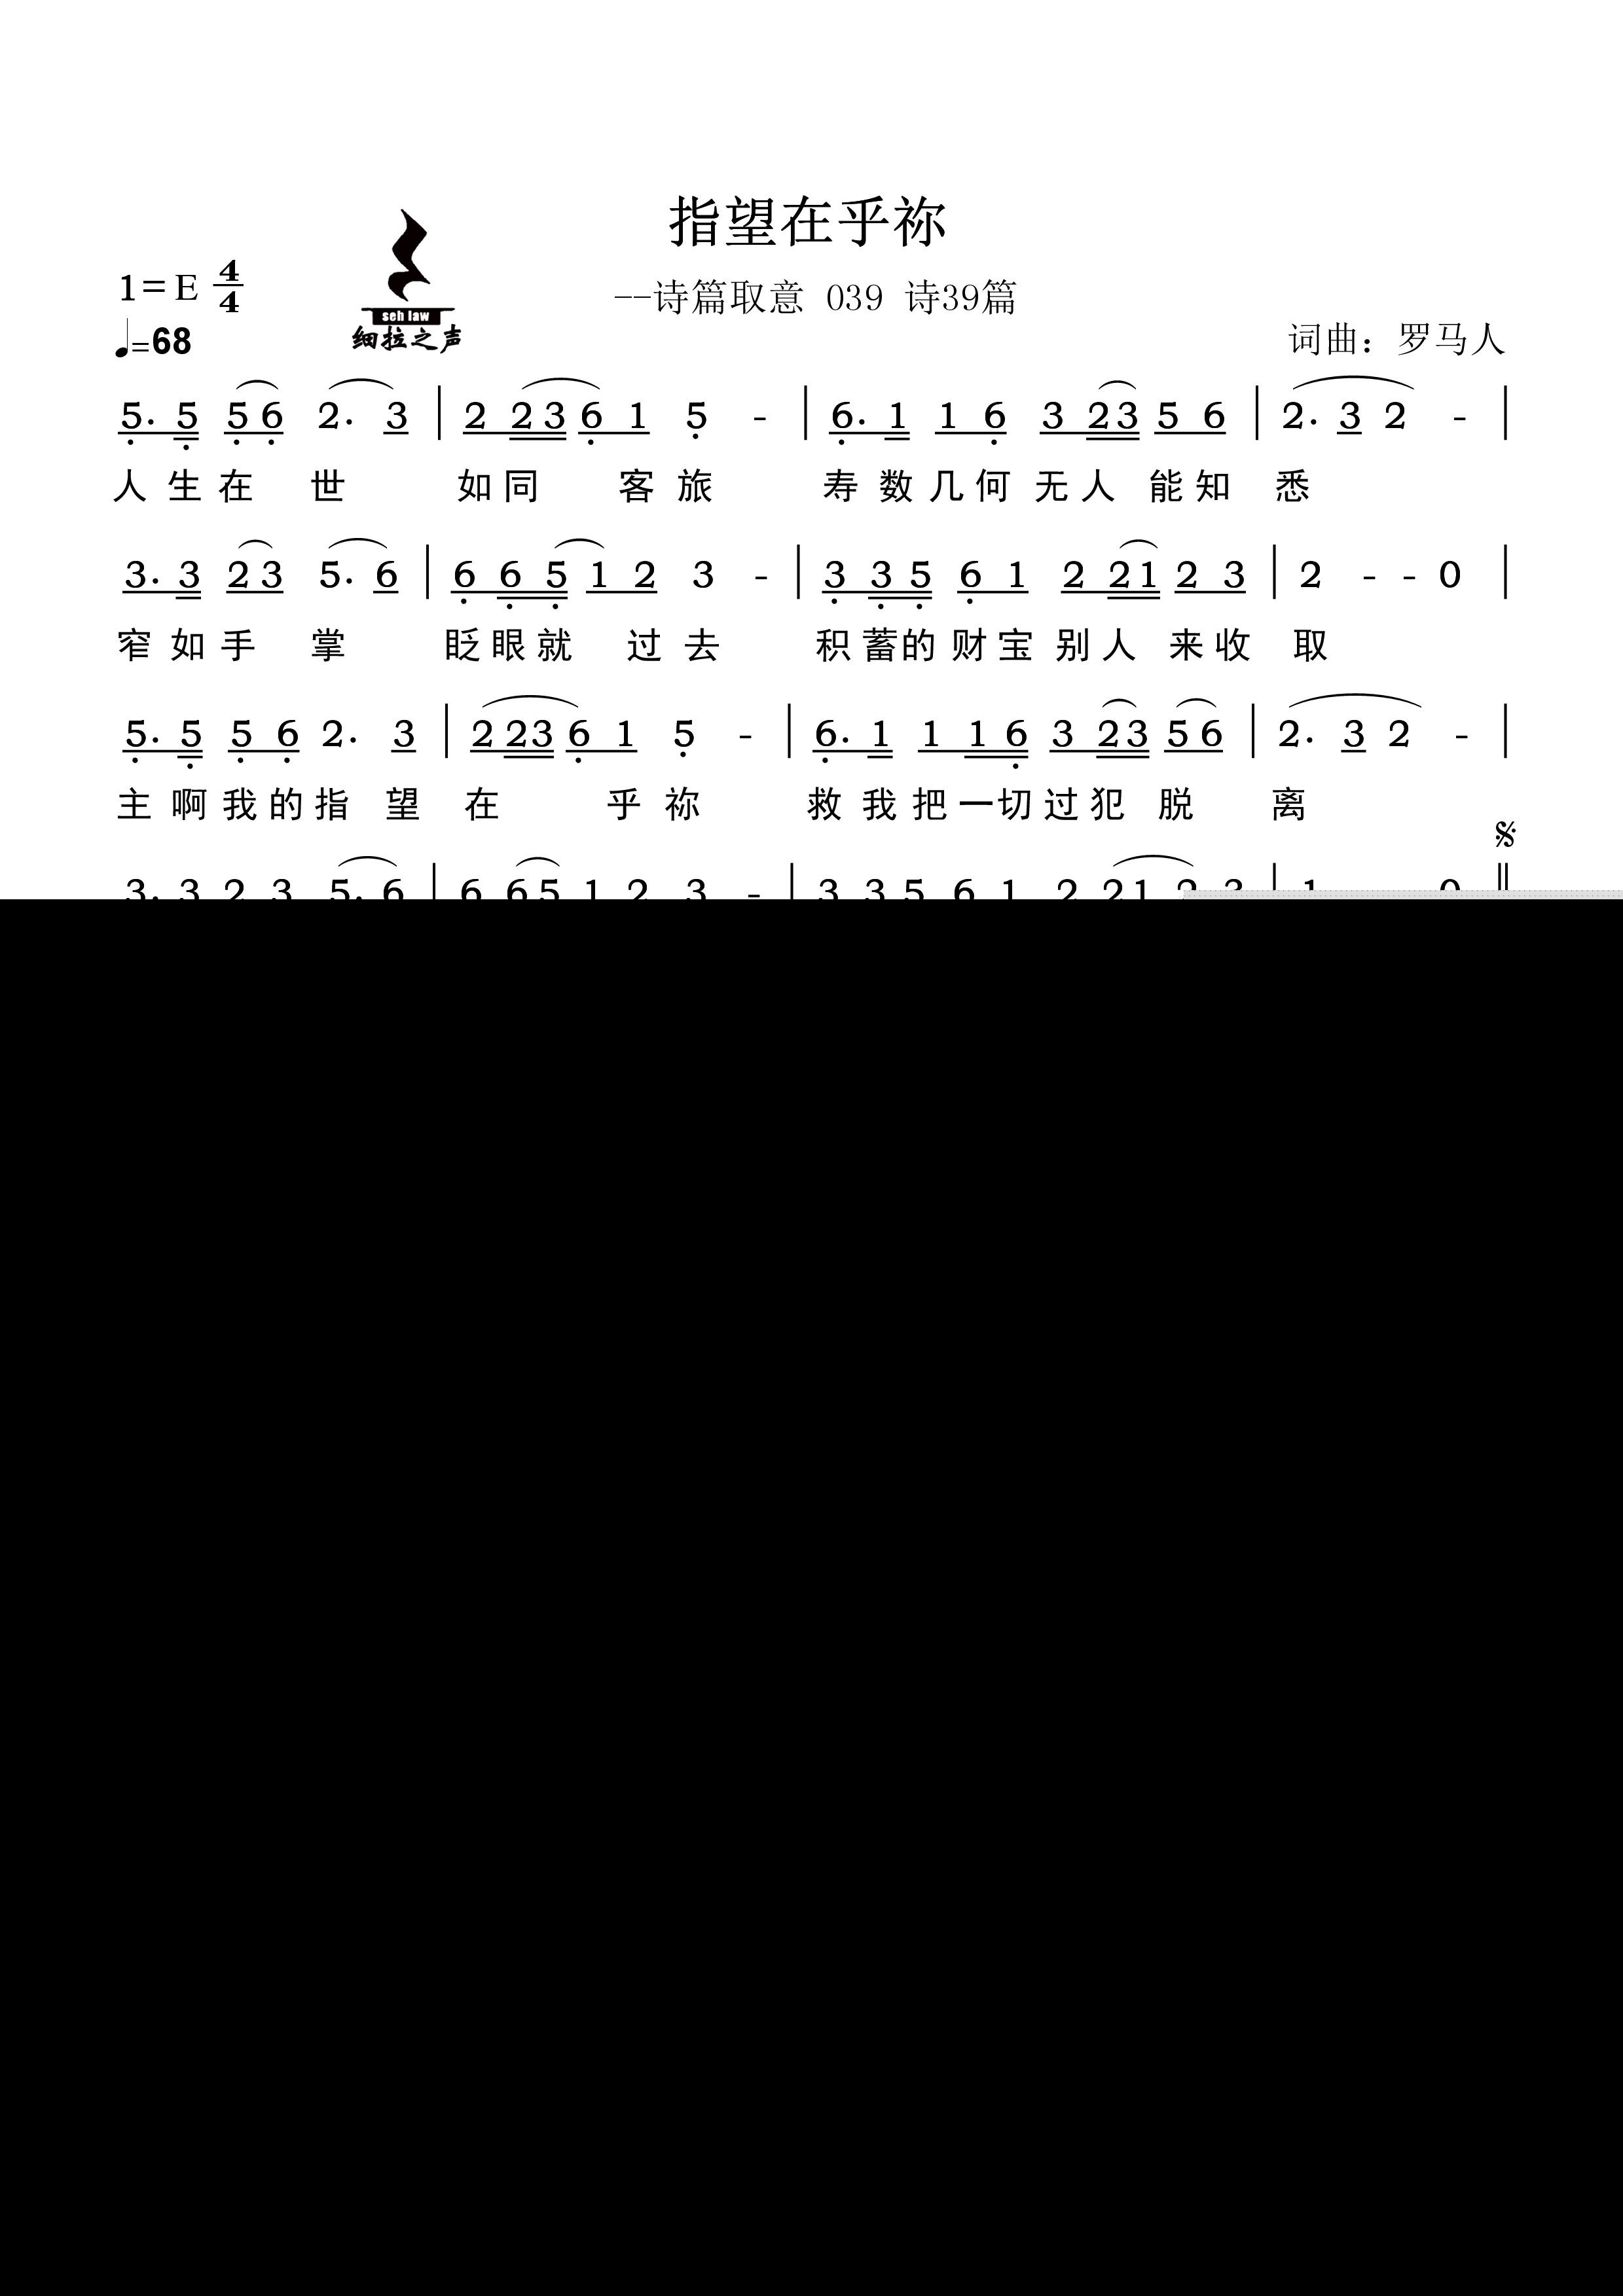 指望在乎祢
1=E 4/4
seh law
--诗篇取意 039 诗39篇
♩=68
细拉之声
词曲：罗马人
5. 5 5 6 2. 3 | 2 2 3 6 1 5 - | 6. 1 1 6 3 2 3 5 6 | 2. 3 2 - |
人生在世 如同客旅 寿数几何无人能知悉
3. 3 2 3 5. 6 | 6 6 5 1 2 3 - | 3 3 5 6 1 2 2 1 2 3 | 2 - - 0 |
窄如手掌 眨眼就过去 积蓄的财宝别人来收取
5. 5 5 6 2. 3 | 2 2 3 6 1 5 - | 6. 1 1 1 6 3 2 3 5 6 | 2. 3 2 - |
主啊我的指望在乎祢 救我把一切过犯脱离
3. 3 2 3 5. 6 | 6 6 5 1 2 3 - | 3 3 5 6 1 2 2 1 2 3 | 1 0 ||